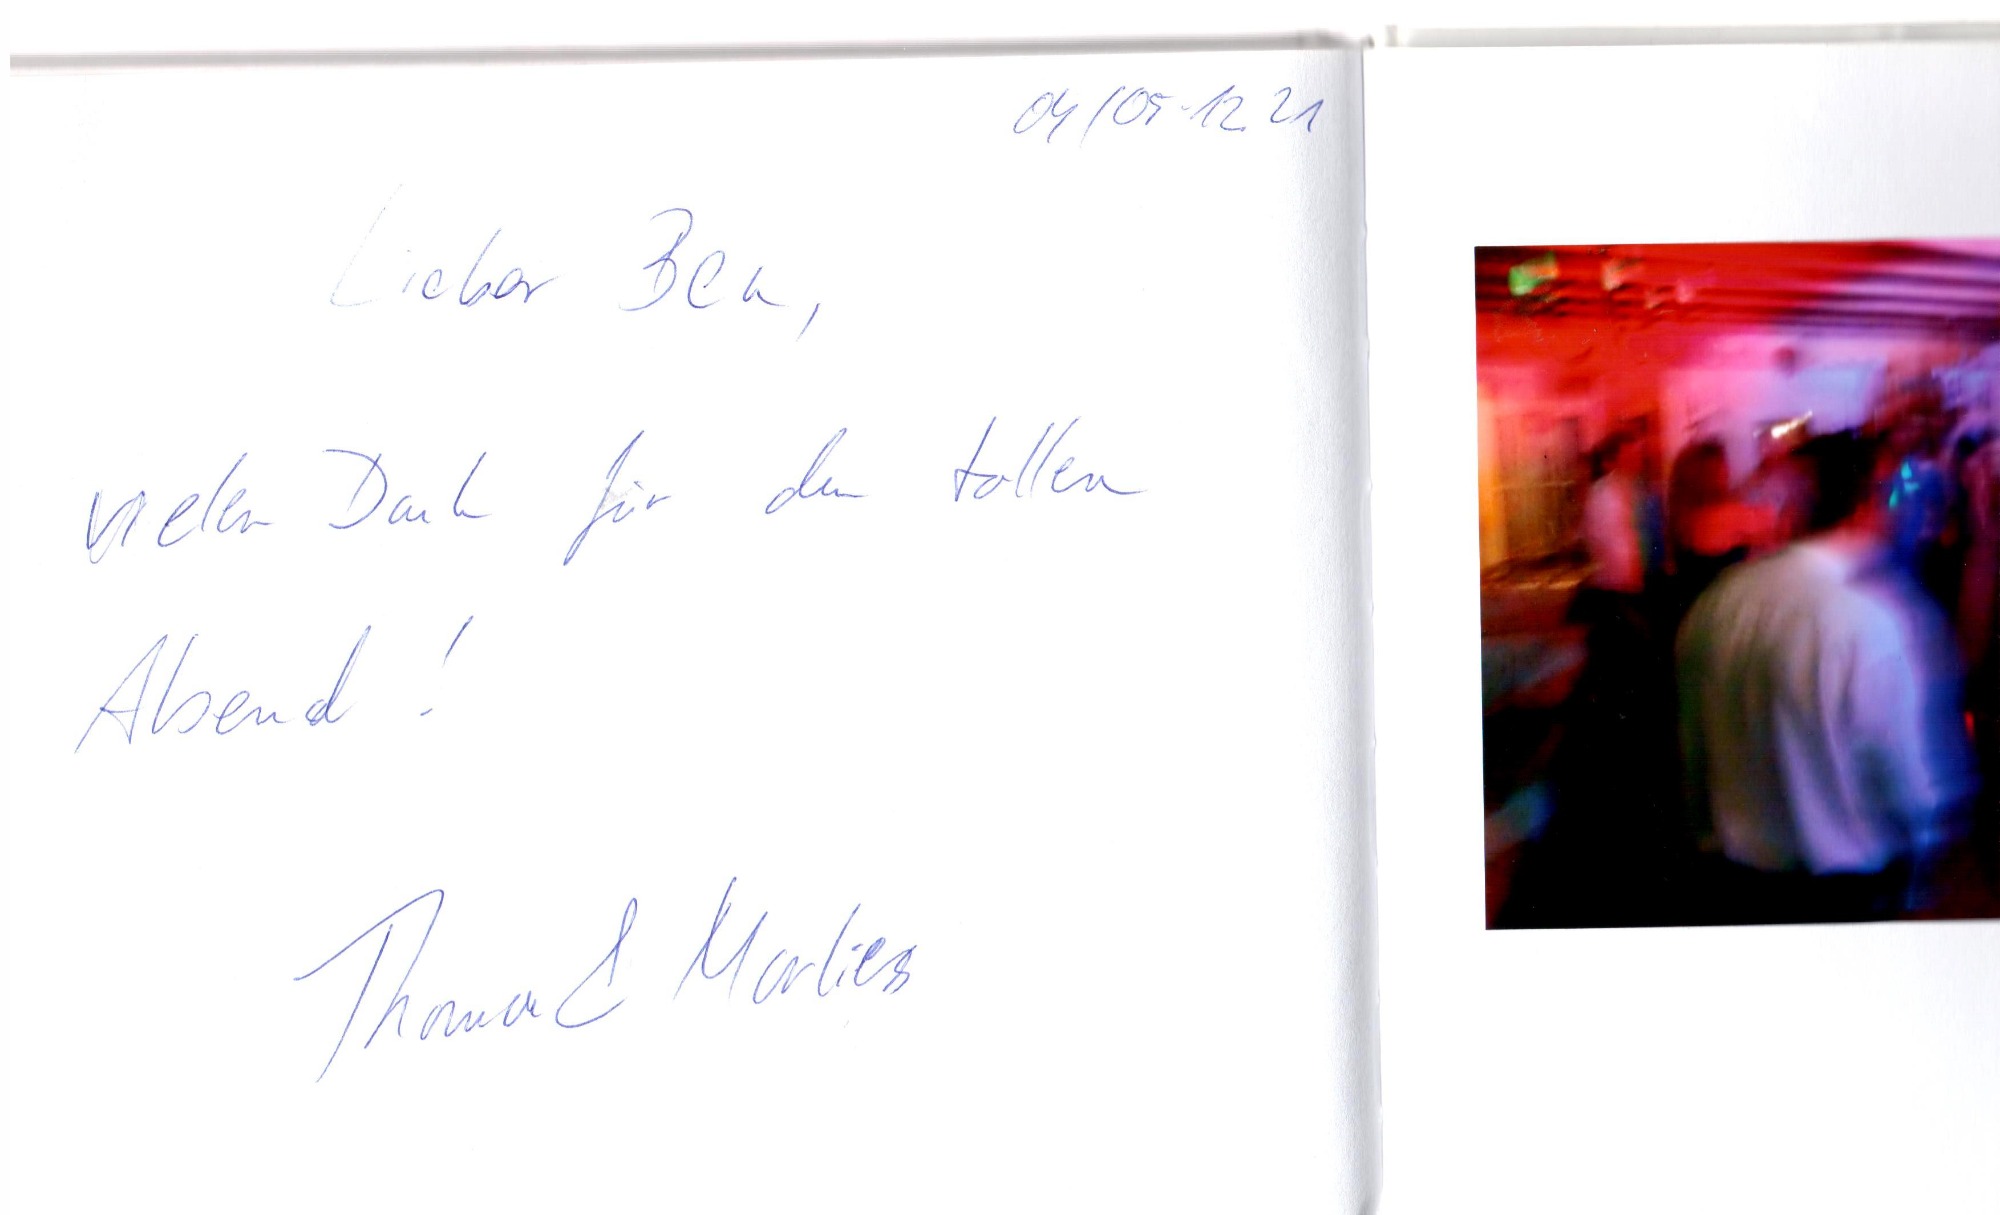 04/05.12.21
Lieber Ben,
vielen Dank für den tollen
Abend!
Thomas & Marliess